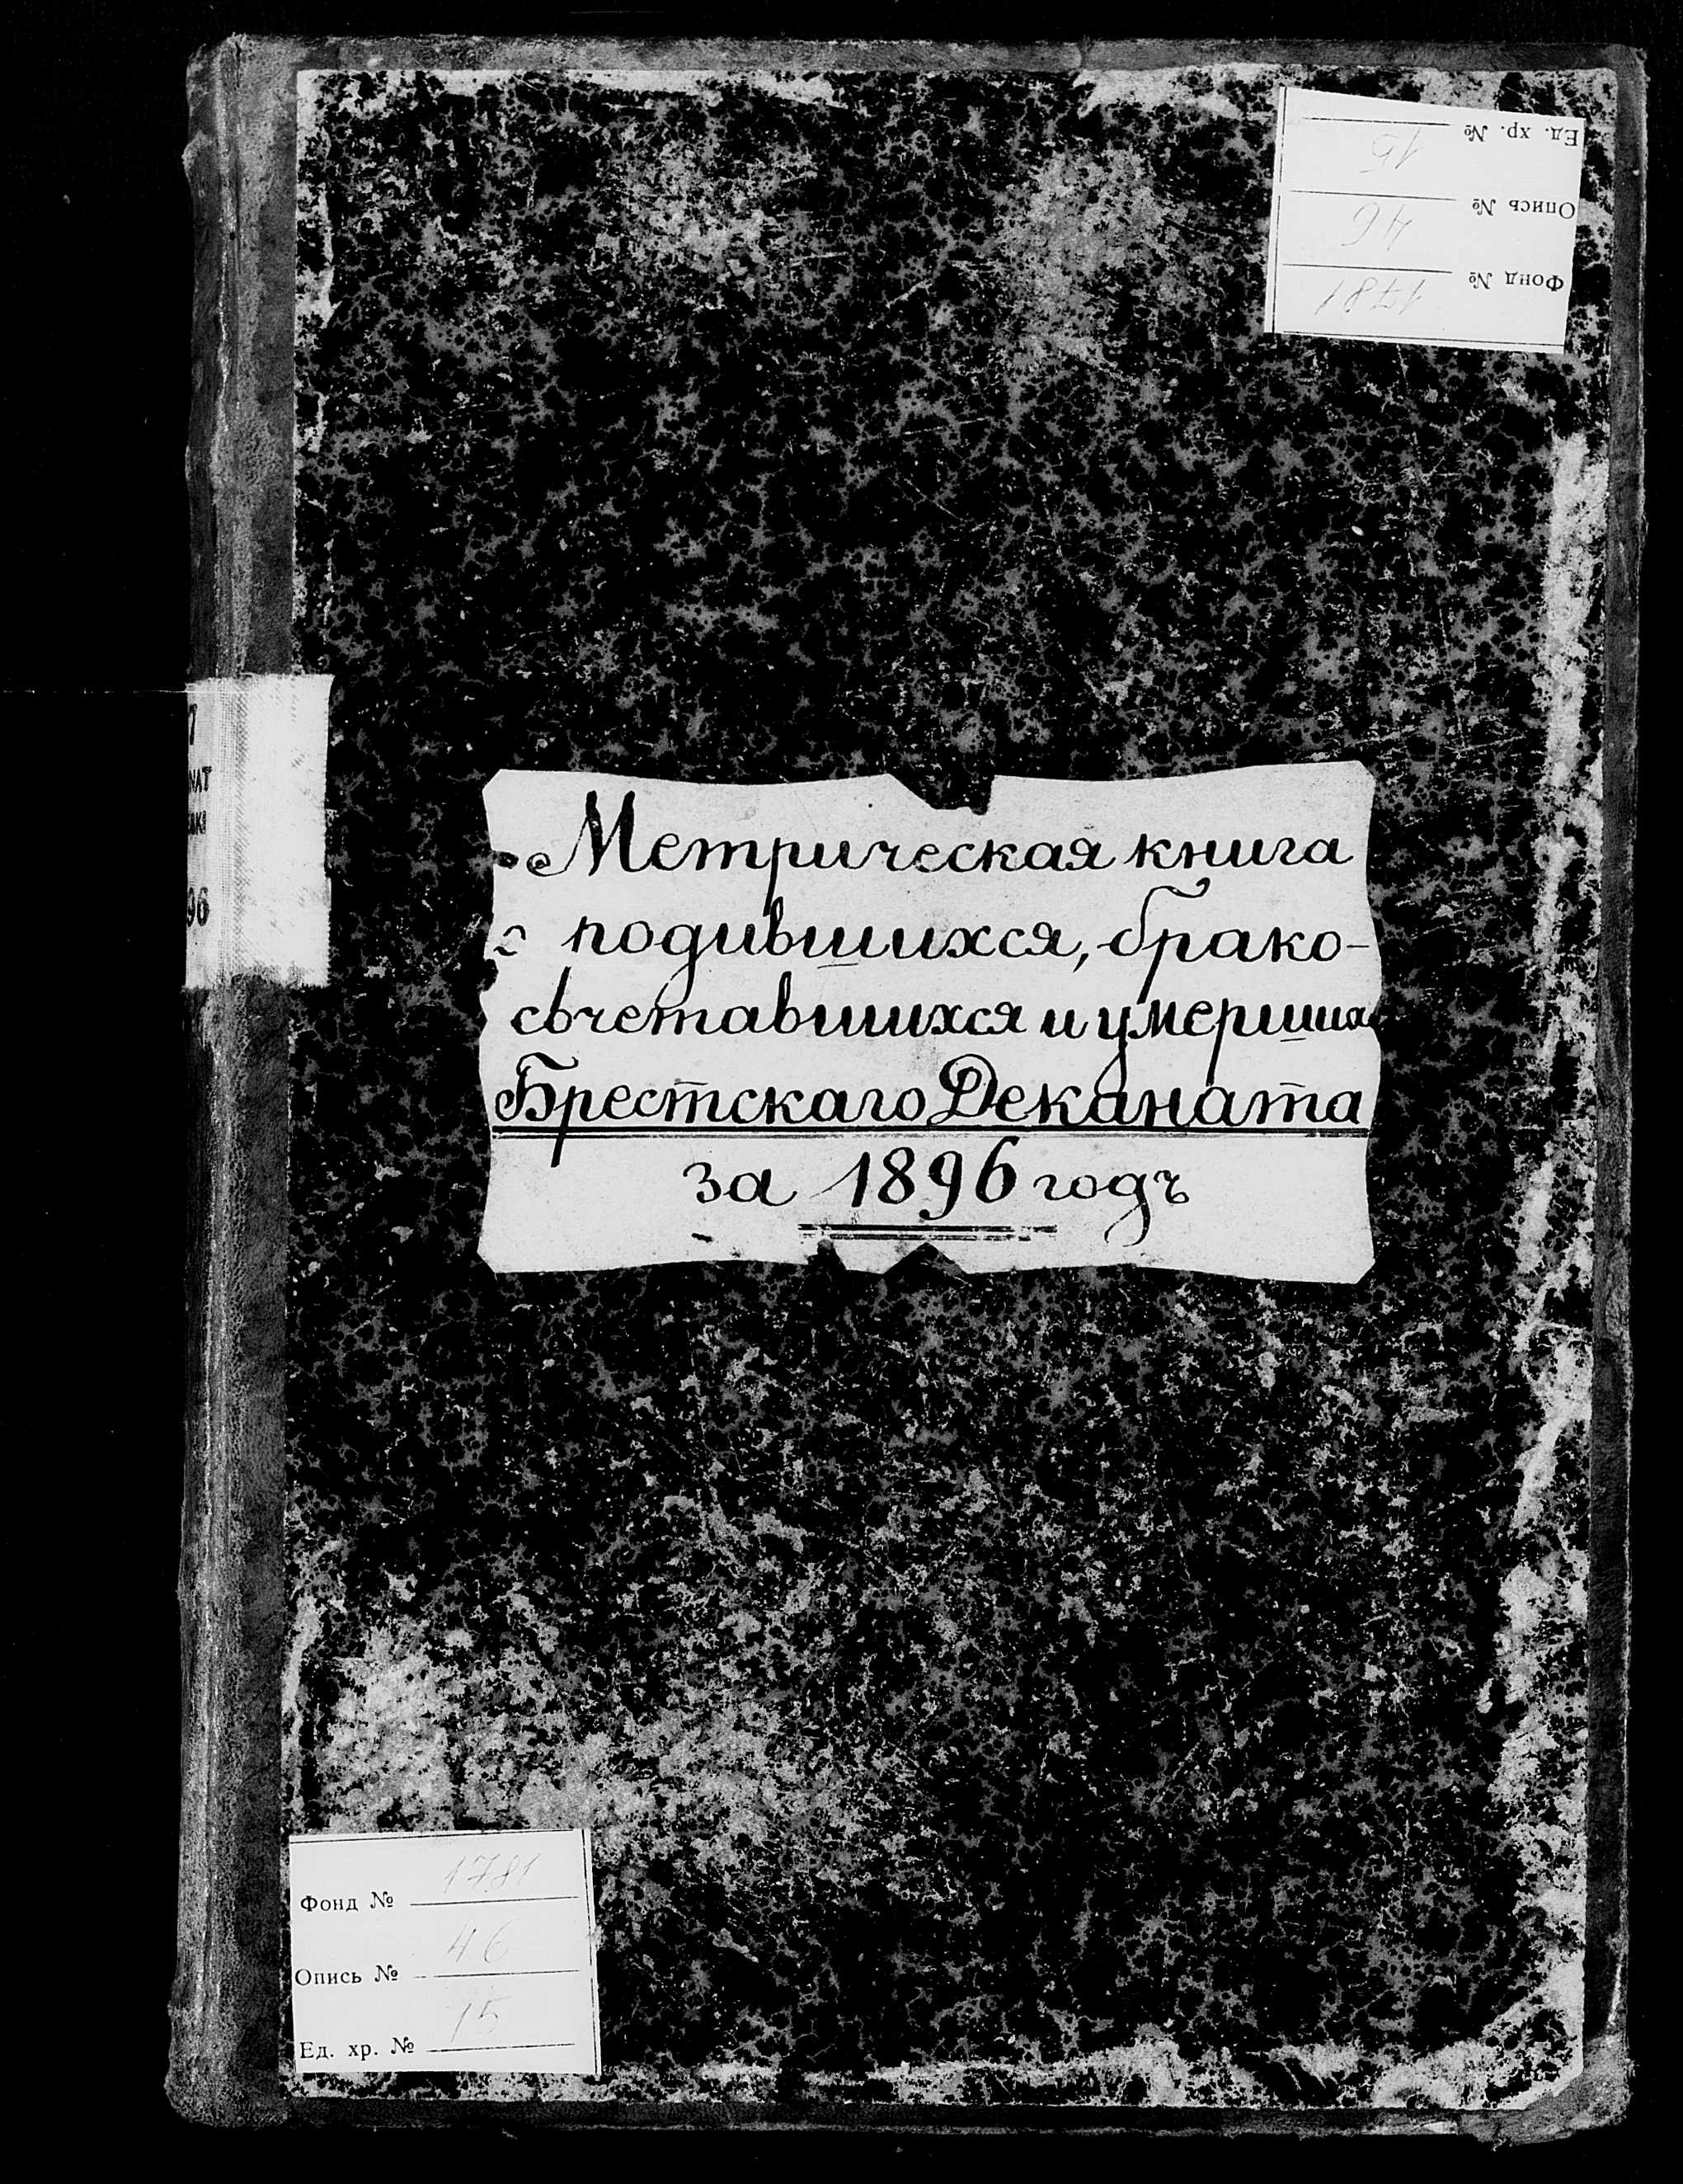 Ед. хр. № 15
Опись № 46
Фонд № 1781
7
NAT
SKI
96
Метрическая книга
о родившихся, брако-
сочетавшихся и умерших
Брестскаго Деканата
за 1896 годъ
Фонд № 1781
Опись № 46
Ед. хр. № 15